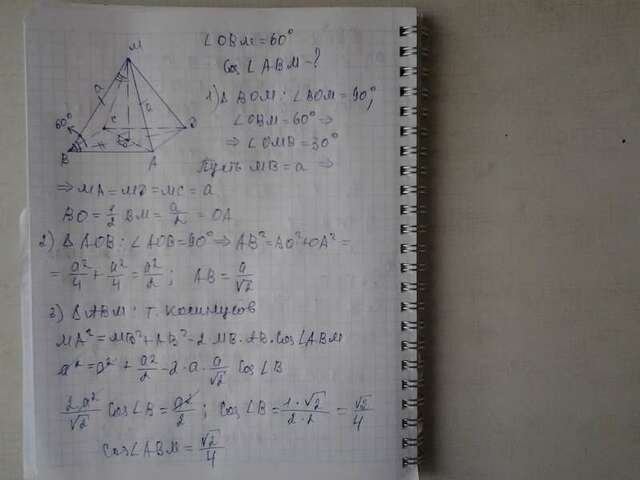 ∠OBM = 60°
Cos ∠ABM - ?
M
a
a
60°
C
D
B
A
1) Δ BOM : ∠BOM = 90°,
∠OBM = 60° ⇒
⇒ ∠OMB = 30°
Пусть MB = a ⇒
⇒ MA = MD = MC = a
BO = 1/2 BM = a/2 = OA
2) Δ AOB : ∠AOB = 90° ⇒ AB² = AO² + OA² =
= a²/4 + a²/4 = a²/2 ; AB = a/√2
3) Δ ABM : т. Косинусов
MA² = MB² + AB² - 2 MB · AB · Cos∠ABM
a² = a² + a²/2 - 2 · a · a/√2 Cos∠B
2a²/√2 Cos∠B = a²/2 ; Cos∠B = 1·√2/2·2 = √2/4
Cos∠ABM = √2/4